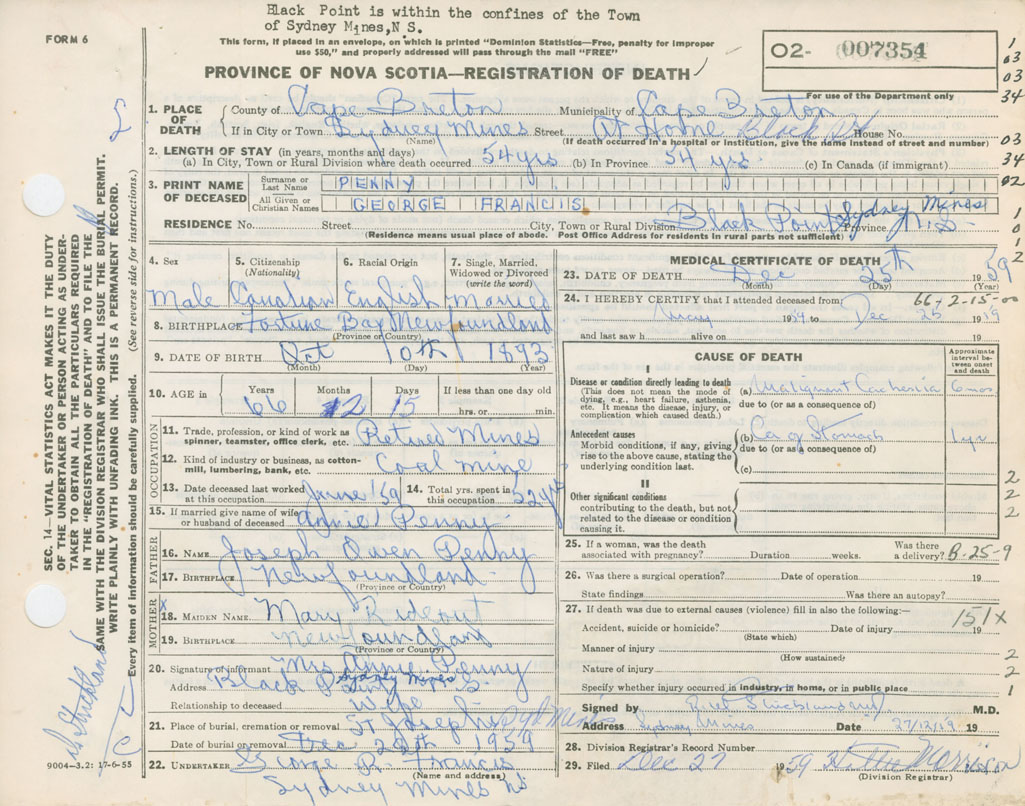 Black Point is within the confines of the Town
of Sydney Mines,N.S.
FORM 6
This form, if placed in an envelope, on which is printed "Dominion Statistics—Free, penalty for improper
use $50," and properly addressed will pass through the mail "FREE"
PROVINCE OF NOVA SCOTIA—REGISTRATION OF DEATH
02- 007354
For use of the Department only
1
03
03
34
03
34
02
1
0
1
2
1. PLACE OF DEATH County of Cape Breton Municipality of Cape Breton
If in City or Town Sydney Mines Street At Home Black Pt House No.
(Name) (If death occurred in a hospital or institution, give the name instead of street and number)
2. LENGTH OF STAY (in years, months and days)
(a) In City, Town or Rural Division where death occurred 54 yrs (b) In Province 54 yrs. (c) In Canada (if immigrant)
3. PRINT NAME OF DECEASED Surname or Last Name PENNY
All Given or Christian Names GEORGE FRANCIS
RESIDENCE No. Street City, Town or Rural Division Black Point Sydney Mines Province N.S.
(Residence means usual place of abode. Post Office Address for residents in rural parts not sufficient)
4. Sex 5. Citizenship (Nationality) 6. Racial Origin 7. Single, Married, Widowed or Divorced (write the word)
Male Canadian English Married
8. BIRTHPLACE Fortune Bay Newfoundland
(Province or Country)
9. DATE OF BIRTH Oct 10th 1893
(Month) (Day) (Year)
10. AGE in Years Months Days If less than one day old
66 2 15 hrs. or min.
OCCUPATION
11. Trade, profession, or kind of work as spinner, teamster, office clerk, etc. Retired Miner
12. Kind of industry or business, as cotton-mill, lumbering, bank, etc. Coal Mine
13. Date deceased last worked at this occupation June '59 14. Total yrs. spent in this occupation 52 yrs
15. If married give name of wife or husband of deceased Annie Penny
FATHER
16. NAME Joseph Owen Penny
17. BIRTHPLACE Newfoundland
(Province or Country)
MOTHER
18. MAIDEN NAME Mary Rideout
19. BIRTHPLACE Newfoundland
(Province or Country)
20. Signature of informant Mrs Annie Penny
Address Black Point Sydney Mines N.S.
Relationship to deceased Wife
21. Place of burial, cremation or removal St Joseph's Syd Mines
Date of burial or removal Dec 28th 1959
22. UNDERTAKER George R. Francis
(Name and address)
Sydney Mines NS
MEDICAL CERTIFICATE OF DEATH
23. DATE OF DEATH Dec 25th 1959
(Month) (Day) (Year)
66-2-15-00
24. I HEREBY CERTIFY that I attended deceased from
May 1959 to Dec 25 1919
and last saw h alive on 19
CAUSE OF DEATH
Approximate interval between onset and death
I
Disease or condition directly leading to death (a) Malignant Cachexia 6 mos
(This does not mean the mode of dying, e.g., heart failure, asthenia, etc. It means the disease, injury, or complication which caused death.)
due to (or as a consequence of)
Antecedent causes (b) Ca of Stomach 1 yr
Morbid conditions, if any, giving rise to the above cause, stating the underlying condition last.
due to (or as a consequence of)
(c)
II
Other significant conditions
contributing to the death, but not related to the disease or condition causing it.
2
2
2
25. If a woman, was the death associated with pregnancy? Duration weeks. Was there a delivery? B-25-9
26. Was there a surgical operation? Date of operation 19
State findings Was there an autopsy?
27. If death was due to external causes (violence) fill in also the following:—
151X
Accident, suicide or homicide? Date of injury 19
(State which)
Manner of injury 2
(How sustained)
Nature of injury 2
Specify whether injury occurred in industry, in home, or in public place 1
Signed by M.D.
Address Sydney Mines Date 27/12/19 19
28. Division Registrar's Record Number
29. Filed Dec 27 1959 Morrison
(Division Registrar)
SEC. 14—VITAL STATISTICS ACT MAKES IT THE DUTY
OF THE UNDERTAKER OR PERSON ACTING AS UNDER-
TAKER TO OBTAIN ALL THE PARTICULARS REQUIRED
IN THE "REGISTRATION OF DEATH" AND TO FILE THE
SAME WITH THE DIVISION REGISTRAR WHO SHALL ISSUE THE BURIAL PERMIT.
WRITE PLAINLY WITH UNFADING INK. THIS IS A PERMANENT RECORD.
Every item of information should be carefully supplied. (See reverse side for instructions.)
9004-3.2: 17-6-55